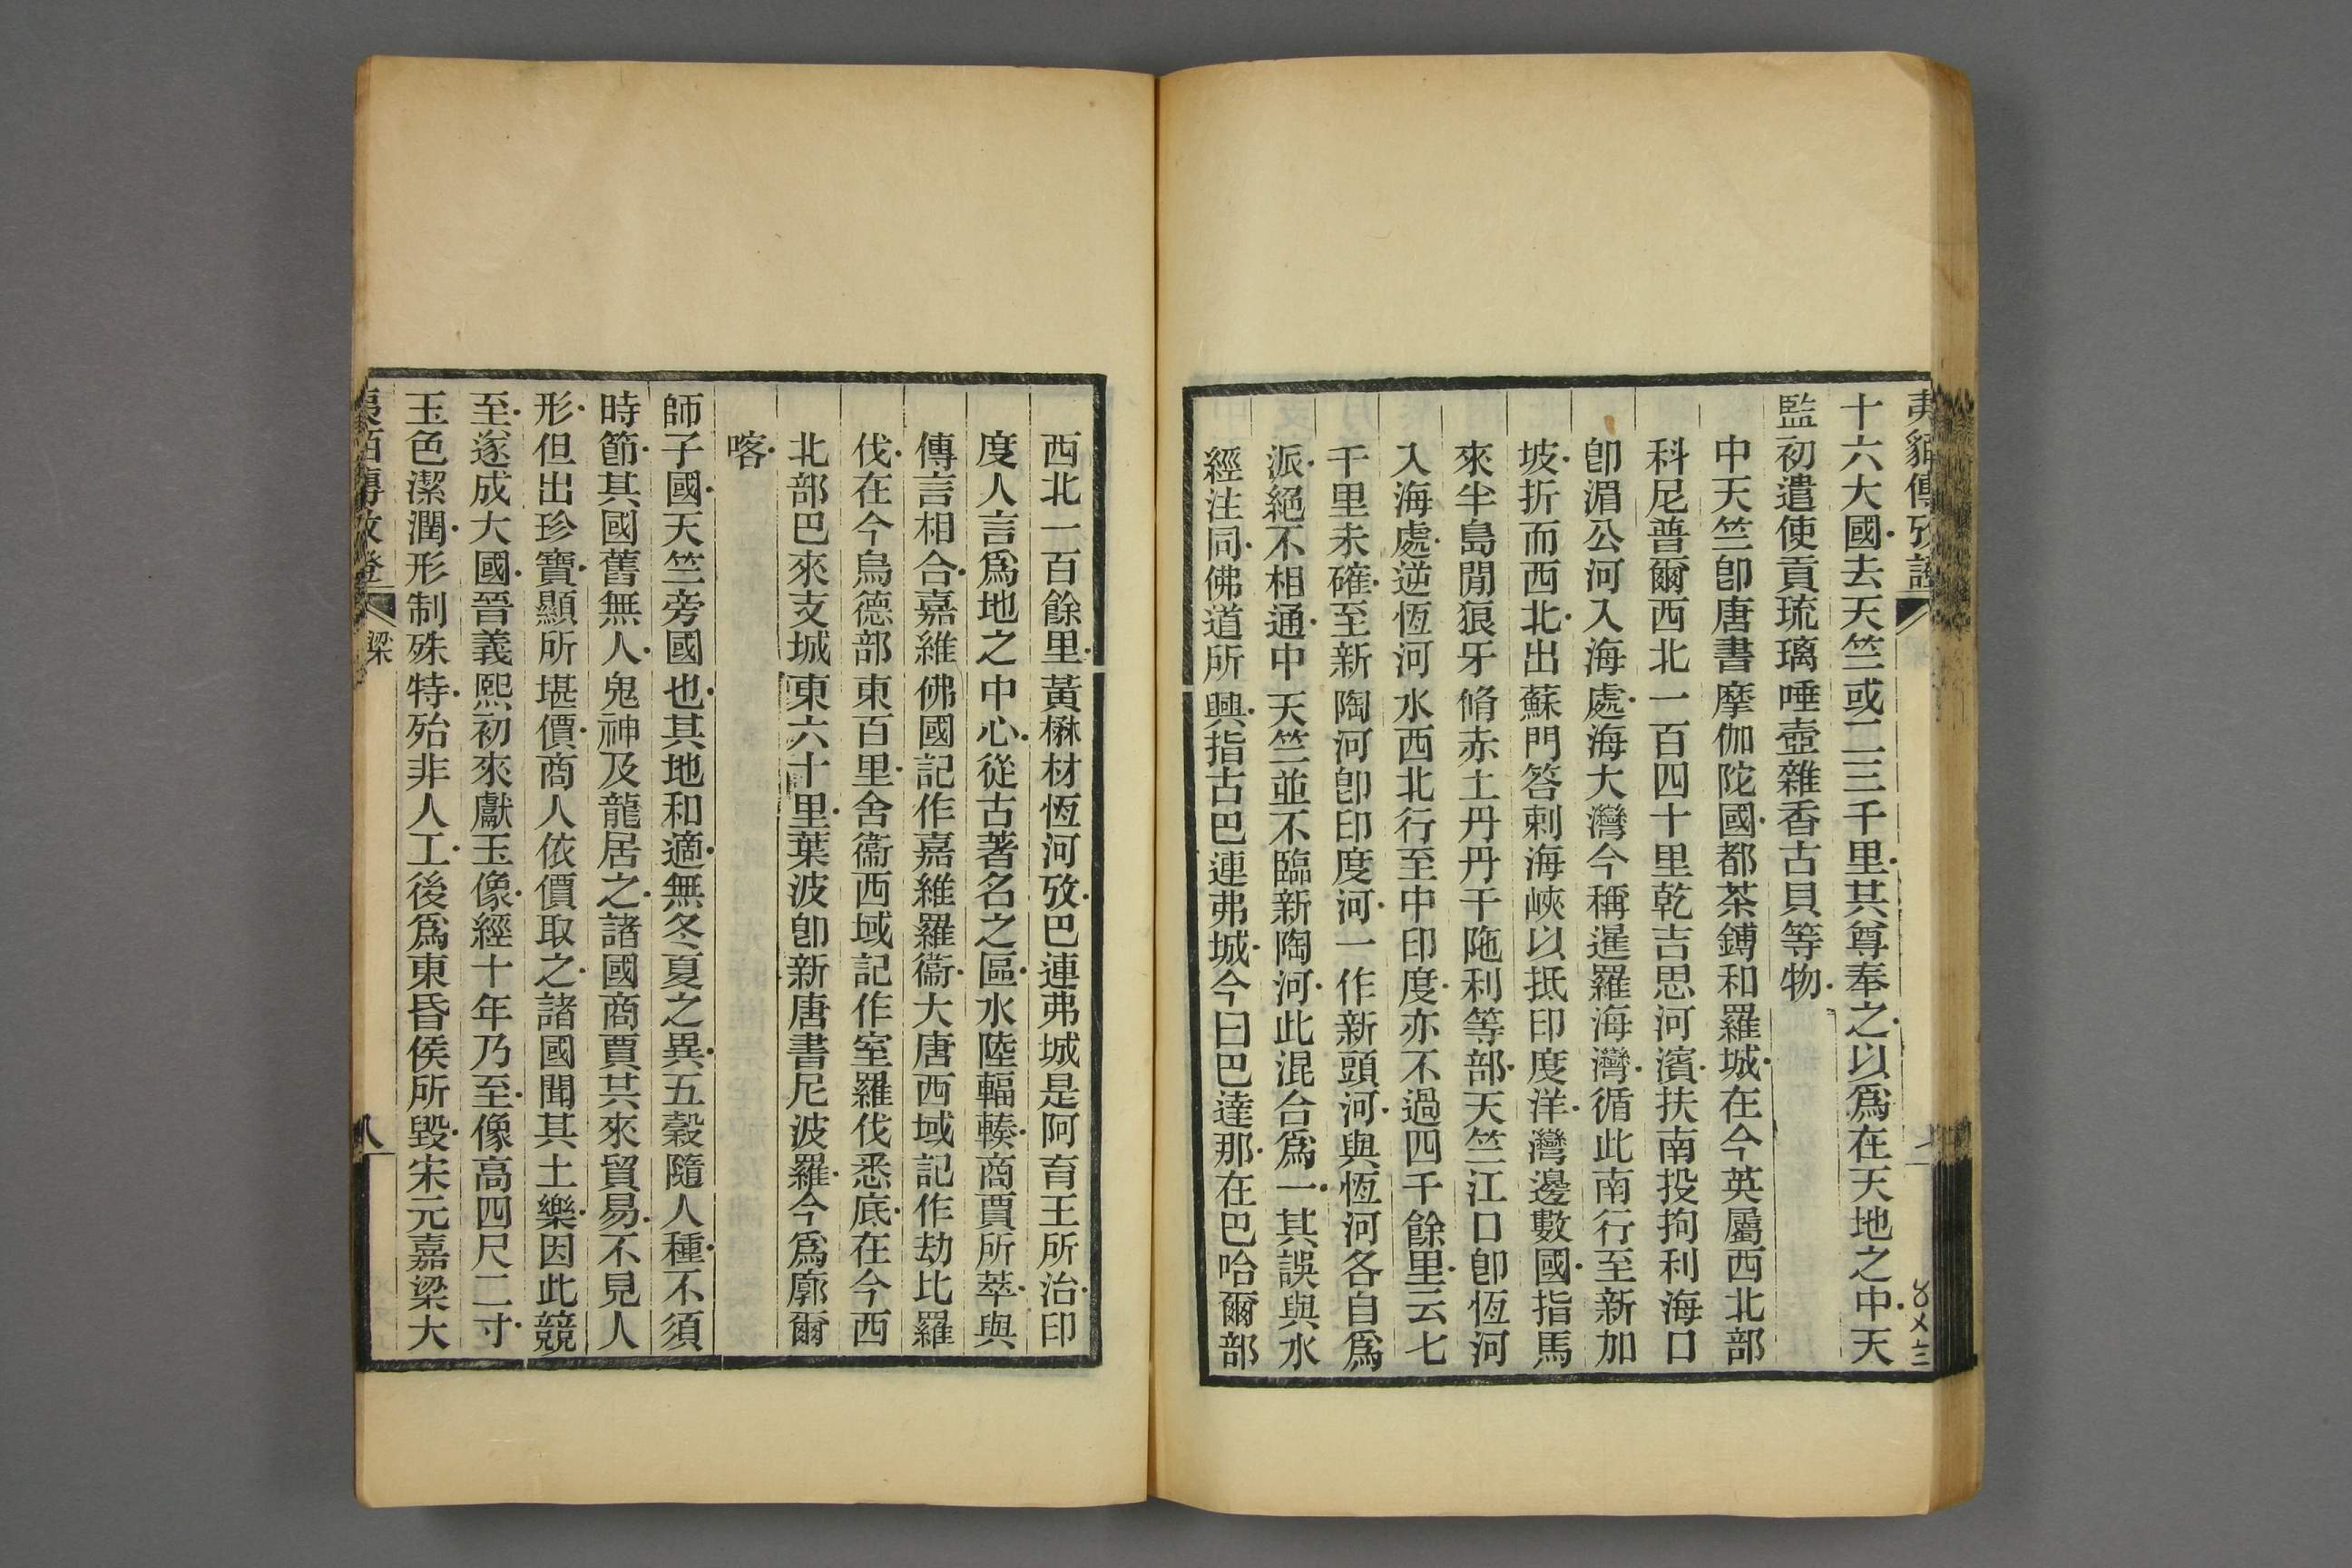 十六大國去天竺或二三千里其尊奉之以爲在天地之中天
監初遣使貢琉璃唾壺雜香古貝等物
中天竺卽唐書摩伽陀國都茶鎛和羅城在今英屬西北部
科尼普爾西北一百四十里乾吉思河濱扶南投拘利海口
卽湄公河入海處海大灣今稱暹羅海灣循此南行至新加
坡折而西北出蘇門答剌海峽以抵印度洋灣邊數國指馬
來半島閒狼牙脩赤土丹丹干陁利等部天竺江口卽恆河
入海處逆恆河水西北行至中印度亦不過四千餘里云七
千里未確至新陶河卽印度河一作新頭河與恆河各自爲
派絕不相通中天竺並不臨新陶河此混合爲一其誤與水
經注同佛道所興指古巴連弗城今曰巴達那在巴哈爾部
西北一百餘里黃楙材恆河攷巴連弗城是阿育王所治印
度人言爲地之中心從古著名之區水陸輻輳商賈所萃與
傳言相合嘉維佛國記作嘉維羅衞大唐西域記作劫比羅
伐在今烏德部東百里舍衞西域記作室羅伐悉底在今西
北部巴來支城東六十里葉波卽新唐書尼波羅今爲廓爾
喀
師子國天竺旁國也其地和適無冬夏之異五穀隨人種不須
時節其國舊無人鬼神及龍居之諸國商賈共來貿易不見人
形但出珍寶顯所堪價商人依價取之諸國聞其土樂因此競
至遂成大國晉義熙初來獻玉像經十年乃至像高四尺二寸
玉色潔潤形制殊特殆非人工後爲東昏侯所毀宋元嘉梁大
梁 八